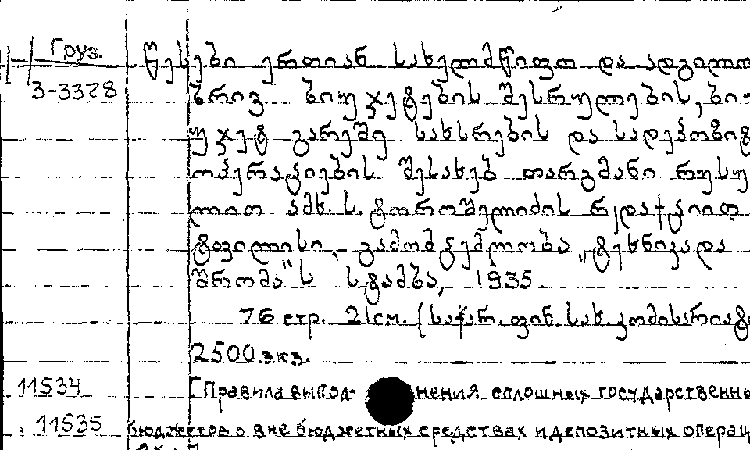 Груз. წესები ერთიან სახელმწიფო და ადგილო
3-3328 ბრივ ბიუჯეტების შესრულების, ბიუ
უჯეტ გარეშე სახსრების და სადეპოზიტ
ოპერაციების შესახებ თარგმანი რუსუ
ლით ამხ. ს. ტოროშელიძის რედაქციით
ტფილისი, გამომცემლობა „ტეხნიკა და
შრომა"ს სტამბა, 1935
76 стр. 21 см. (საქარ. ფინ. სახ. კომისარიატ
2500 экз.
11534 [Правила выпол нения сплошных государственны
11535 бюджетов о вне бюджетных средствах и депозитных операц